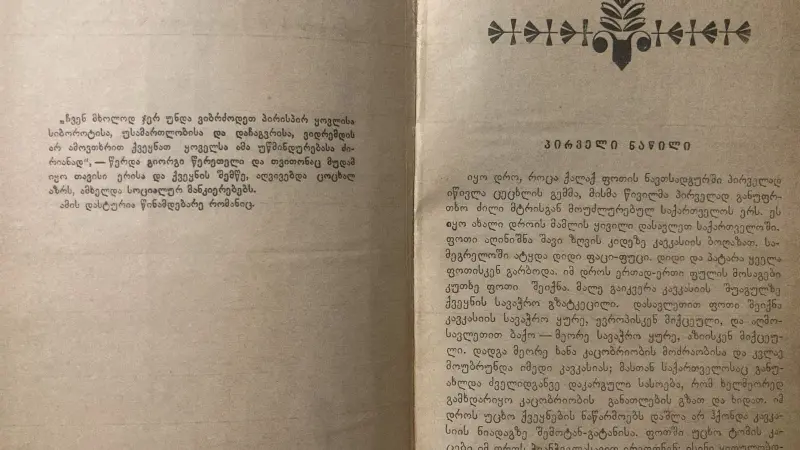 „ჩვენ მხოლოდ ჯერ უნდა ვიბრძოდეთ პირისპირ ყოვლისა
სიბოროტისა, უსამართლობისა და დაჩაგვრისა, ვიდრემდის
არ ამოვთხრით ქვეყნათ ყოველსა ამა უწმინდურებასა ძი-
რიანად“, — წერდა გიორგი წერეთელი და თვითონაც მუდამ
იყო თავისი ერისა და ქვეყნის შემწე, აღვივებდა ცოცხალ
აზრს, ამხელდა სოციალურ მანკიერებებს.
ამის დასტურია წინამდებარე რომანიც.
ᲞᲘᲠᲕᲔᲚᲘ ᲜᲐᲬᲘᲚᲘ
იყო დრო, როცა ქალაქ ფოთის ნავთსადგურში პირველად
იწივლა ცეცხლის გემმა, მისმა წივილმა პირველად განუფრ-
თხო ძილი მტრისგან მოუძლურებულ საქართველოს ერს. ეს
იყო ახალი დროის მამლის ყივილი დასავლეთ საქართველოში.
ფოთი აღინიშნა შავი ზღვის კიდეზე კავკასიის ბოღაზათ. სა-
მეგრელოში ატყდა დიდი ფაცი-ფუცი. დიდი და პატარა ყველა
ფოთისკენ გარბოდა. იმ დროს ერთად-ერთი ფულის მოსაგები
კუთხე ფოთი შეიქნა. მალე გაიკვერა კავკასიის შუაგულზე
ქვეყნის სავაჭრო გზატკეცილი. დასავლეთით ფოთი შეიქნა
კავკასიის სავაჭრო ყურე, ევროპისკენ მიქცეული, და აღმო-
სავლეთით ბაქო — მეორე სავაჭრო ყურე, აზიისკენ მიქცეუ-
ლი. დადგა მეორე ხანა კაცობრიობის მოძრაობისა და კვლავ
მოუბრუნდა იმედი კავკასიას; მასთან საქართველოსაც განუ-
ახლდა ძველიდგანვე დაკარგული სასოება, რომ ხელმეორედ
გამხდარიყო კაცობრიობის განათლების გზათ და ხიდათ. იმ
დროს უცხო ქვეყნების ნაწარმოებს დაშლა არ ჰქონდა კავკა-
სიის ნიადაგზე შემოტან-გატანისა. ფოთში უცხო ტომის კა-